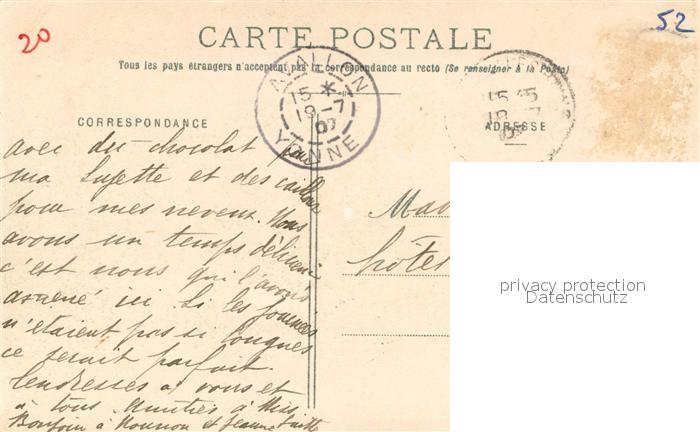 20
52
CARTE POSTALE
Tous les pays étrangers n'acceptent pas la correspondance au recto (Se renseigner à la Poste)
AVALLON
15 *
19-7
07
YONNE
15 45
CORRESPONDANCE
ADRESSE
avec du chocolat pour
ma Suzette et des cailloux
pour mes neveux. Nous
avons un temps délicieux
c'est nous qui l'avons
amené ici. Si les journées
n'étaient pas si longues
ce serait parfait.
Tendresses à vous et
à tous. Amitiés à Miss
Bonjour à et Jeannette
Mad
hôtel
privacy protection
Datenschutz